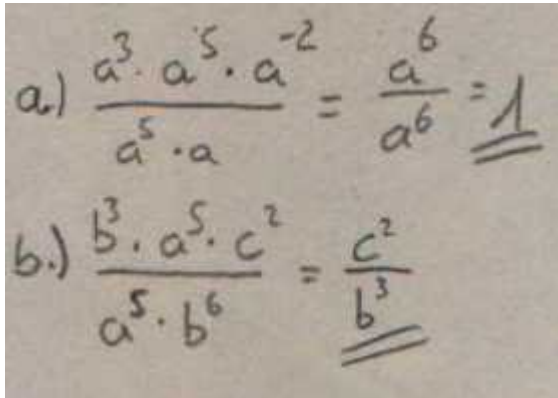 a.) (a³ · a⁵ · a⁻²) / (a⁵ · a) = a⁶ / a⁶ = 1
b.) (b³ · a⁵ · c²) / (a⁵ · b⁶) = c² / b³